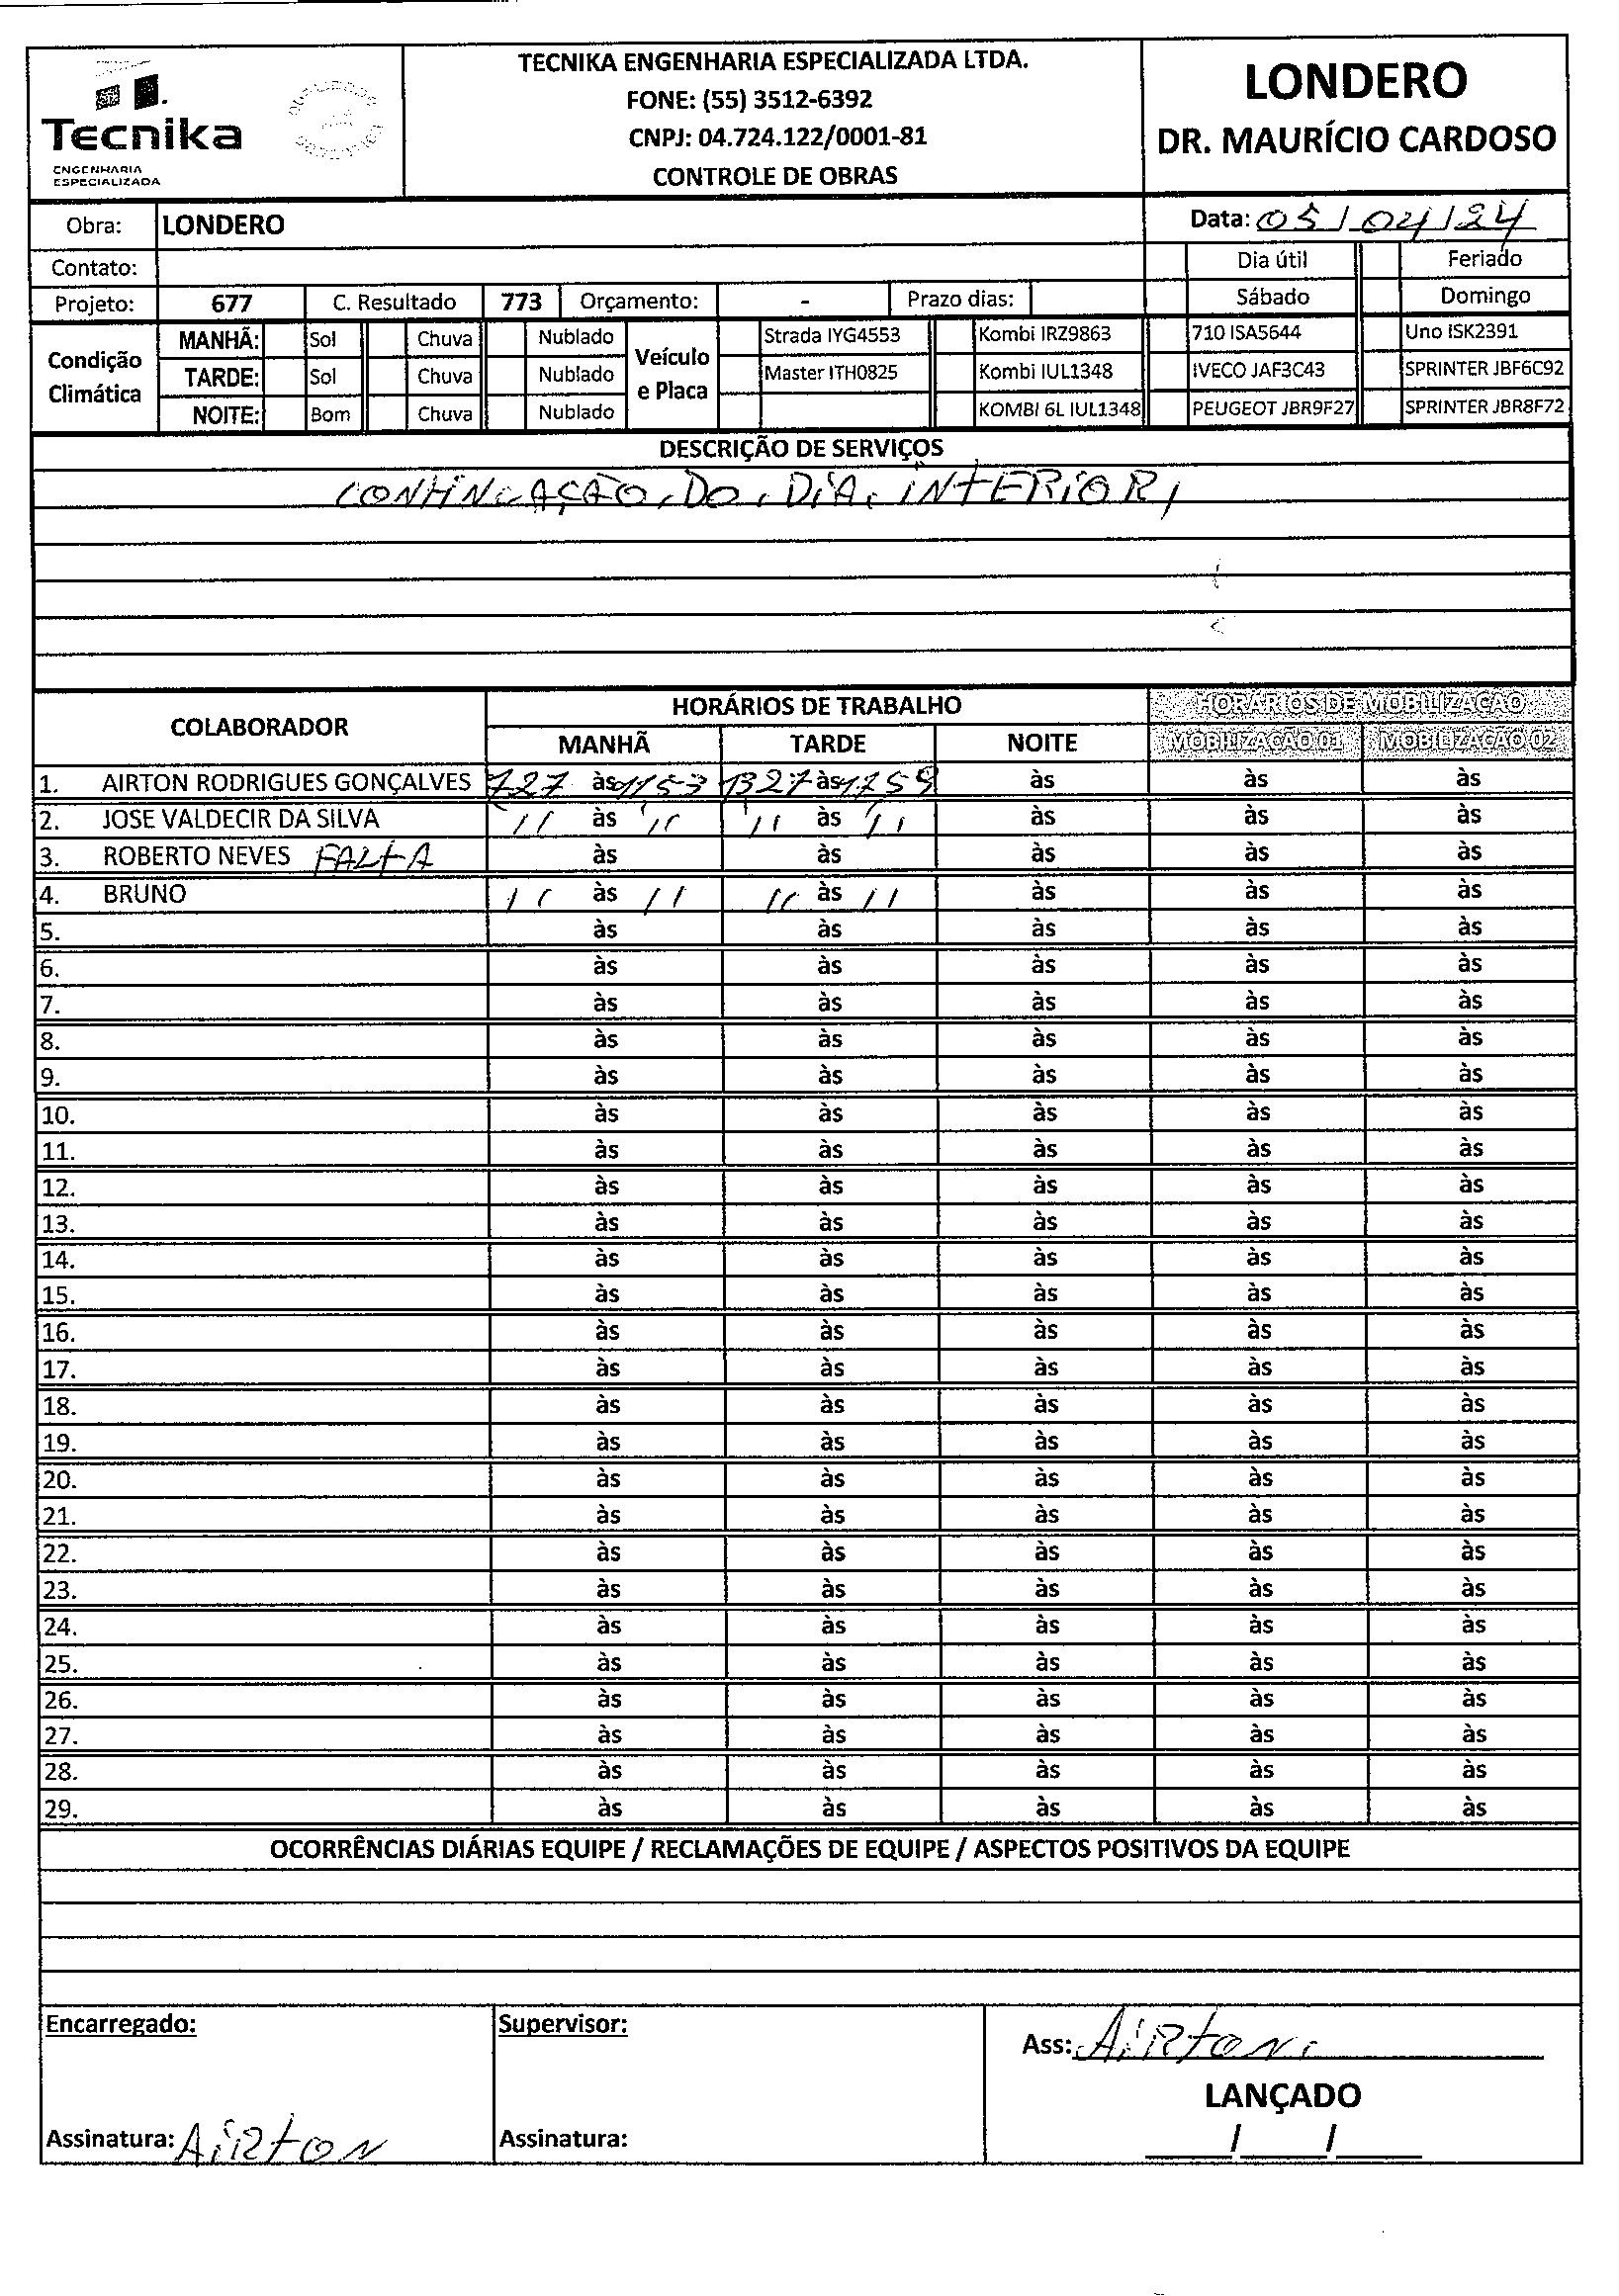 Tecnika
ENGENHARIA
ESPECIALIZADA
TECNIKA ENGENHARIA ESPECIALIZADA LTDA.
FONE: (55) 3512-6392
CNPJ: 04.724.122/0001-81
CONTROLE DE OBRAS
LONDERO
DR. MAURÍCIO CARDOSO
Obra: LONDERO Data: 05/04/24
Contato: Dia útil Feriado
Projeto: 677 C. Resultado 773 Orçamento: - Prazo dias: Sábado Domingo
Condição Climática Veículo e Placa
MANHÃ: Sol Chuva Nublado Strada IYG4553 Kombi IRZ9863 710 ISA5644 Uno ISK2391
TARDE: Sol Chuva Nublado Master ITH0825 Kombi IUL1348 IVECO JAF3C43 SPRINTER JBF6C92
NOITE: Bom Chuva Nublado KOMBI 6L IUL1348 PEUGEOT JBR9F27 SPRINTER JBR8F72
DESCRIÇÃO DE SERVIÇOS
CONTINUAÇÃO, DO, DIA, INTERIOR,
COLABORADOR HORÁRIOS DE TRABALHO HORÁRIOS DE MOBILIZAÇÃO
MANHÃ TARDE NOITE MOBILIZAÇÃO 01 MOBILIZAÇÃO 02
1. AIRTON RODRIGUES GONÇALVES 727 às 1153 1327 às 1759 às às às
2. JOSE VALDECIR DA SILVA 11 às 11 11 às 11 às às às
3. ROBERTO NEVES FALTA às às às às às
4. BRUNO 11 às 11 11 às 11 às às às
5. às às às às às
6. às às às às às
7. às às às às às
8. às às às às às
9. às às às às às
10. às às às às às
11. às às às às às
12. às às às às às
13. às às às às às
14. às às às às às
15. às às às às às
16. às às às às às
17. às às às às às
18. às às às às às
19. às às às às às
20. às às às às às
21. às às às às às
22. às às às às às
23. às às às às às
24. às às às às às
25. às às às às às
26. às às às às às
27. às às às às às
28. às às às às às
29. às às às às às
OCORRÊNCIAS DIÁRIAS EQUIPE / RECLAMAÇÕES DE EQUIPE / ASPECTOS POSITIVOS DA EQUIPE
Encarregado: Supervisor: Ass: AiRton
LANÇADO
Assinatura: AiRtoN Assinatura: / /